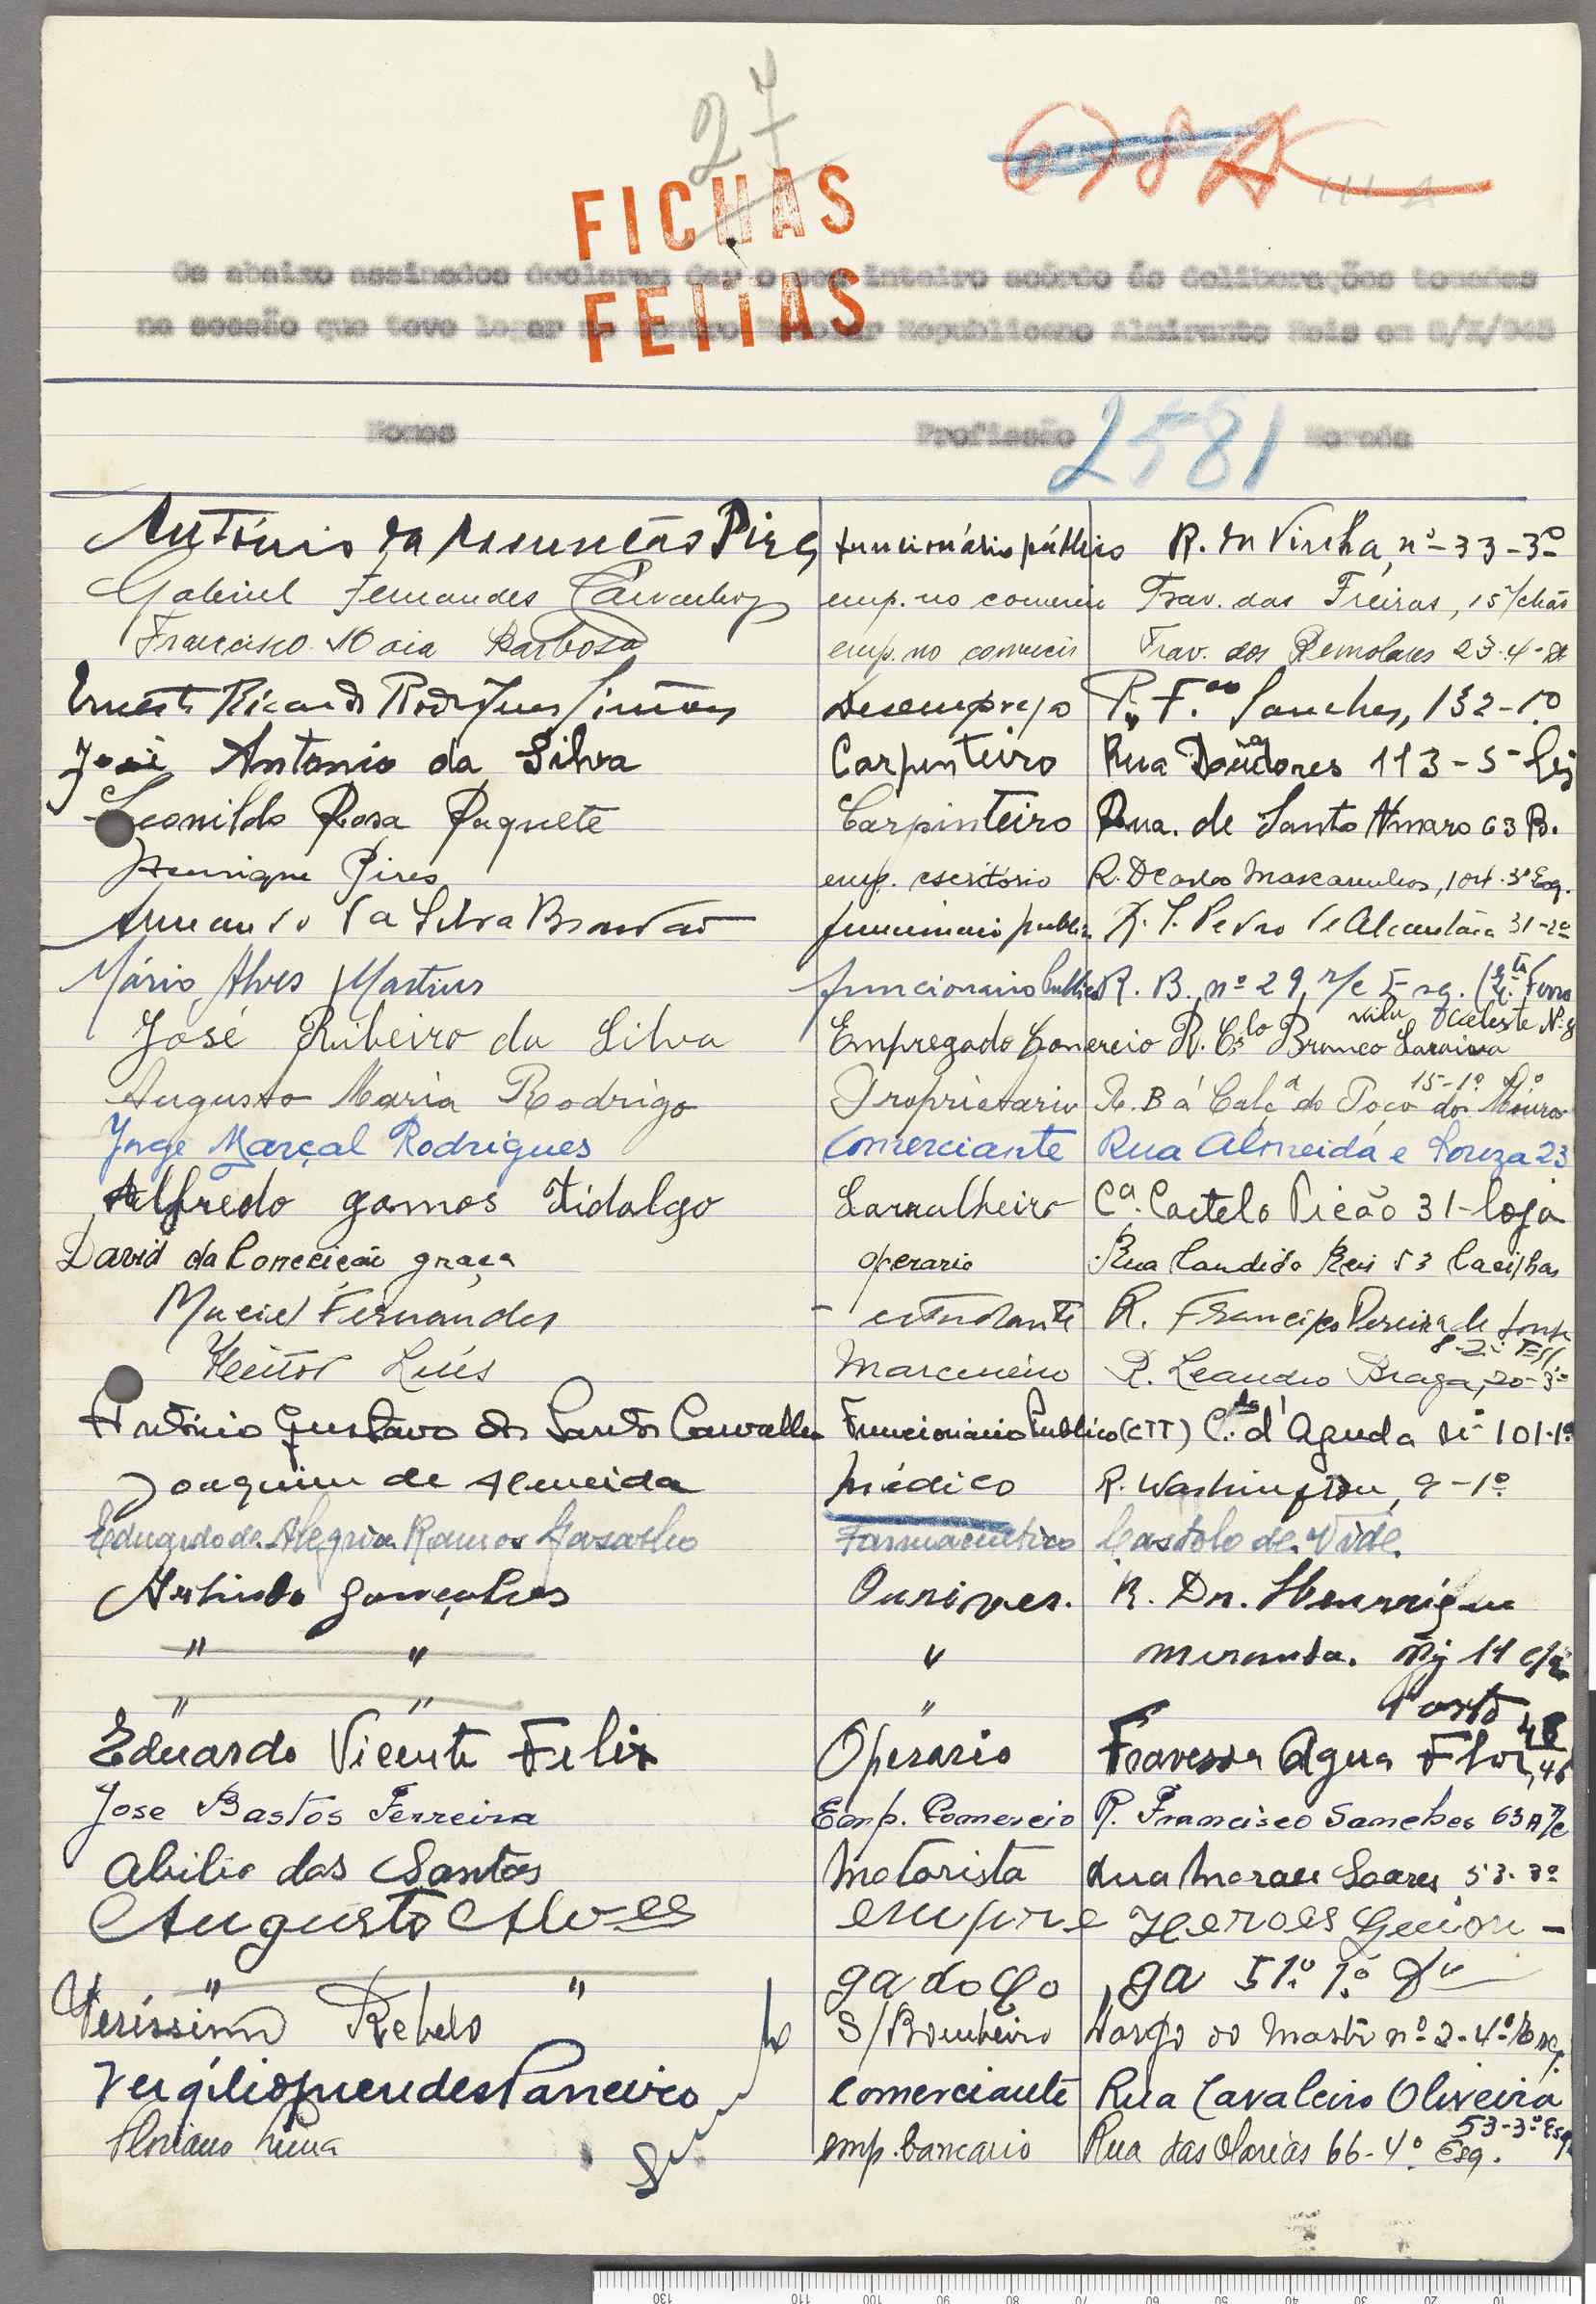 27
6782
FICHAS
FEITAS
Os abaixo assinados declaram dar o seu inteiro acôrdo ás deliberações tomadas
na sessão que teve logar no Centro Escolar Republicano Almirante Reis em 8/X/945
Nomes Profissão 2581 Morada
António da Assunção Pires funcionário público R. da Vinha, nº 33-3º
Gabriel Fernandes Carvalho emp. no comercio Trav. das Freiras, 15 /chão
Francisco Maia Barbosa emp. no comercio Trav. dos Remolares 23-4-
Ernesto Ricardo Rodrigues Simões Desemprego R. Fco Sanches, 132-1º
José Antonio da Silva Carpinteiro Rua Douradores 113-5-
Leonildo Rosa Paquete Carpinteiro Rua. de Santo Amaro 63 B.
Henrique Pires emp. escritório R. D Carlos Mascarenhas, 104-3º Esq.
Armando da Silva Brandão funcionario publico R. S. Pedro de Alcantara 31-2º
Mário Alves Martins funcionario Publico R. B. nº 29, r/c Esq. (
Vila Celeste N. 8
José Ribeiro da Silva Empregado Comercio R. Cslo Branco Saraiva
15-1º Dº
Augusto Maria Rodrigo Proprietario R. B á Calçª do Poço dos Mouros
Jorge Marçal Rodrigues Comerciante Rua Almeida e Souza 23
Alfredo Gomes Fidalgo Serralheiro Cª. Castelo Picão 31-loja
David da Conceição Graça operario Rua Candido Reis 53 Cacilhas
Maciel Fernandes - estudante R. Francisco Pereira de Sousa
8-2º Esq.
Heitor Luís Marceneiro R. Leandro Braga, 20-3º
António Gustavo dos Santos Carvalho Funcionário Publico (CTT) C. d'Agueda nº 101-1º
Joaquim de Almeida Médico R. Washington, 9-1º
Eduardo de Alegria Ramos Farmaceutico Castelo de Vide.
Arlindo Gonçalves Ourives. R. Dr. Henrique
" " " Miranda. 11
" " " Porto
48
Eduardo Vicente Felix Operario Travessa Agua Flor, 46
Jose Bastos Ferreira Emp. Comercio R. Francisco Sanches 63 A r/c
Abilio dos Santos Motorista Rua Morais Soares 53-3º
Augusto Alves empre Heroes Quion-
" " gado Co ga 51º 1º Dto
Verissimo Rebelo S/Bombeiro Largo do Mastro nº 2-4º Esq.
Vergilio Mendes Paneiro Comerciante Rua Cavaleiro Oliveira
53-3º Esq.
Floriano Lima emp. bancario Rua das Olarias 66-4º Esq.
130 110 100 90 80 70 60 50 40 30 20 10